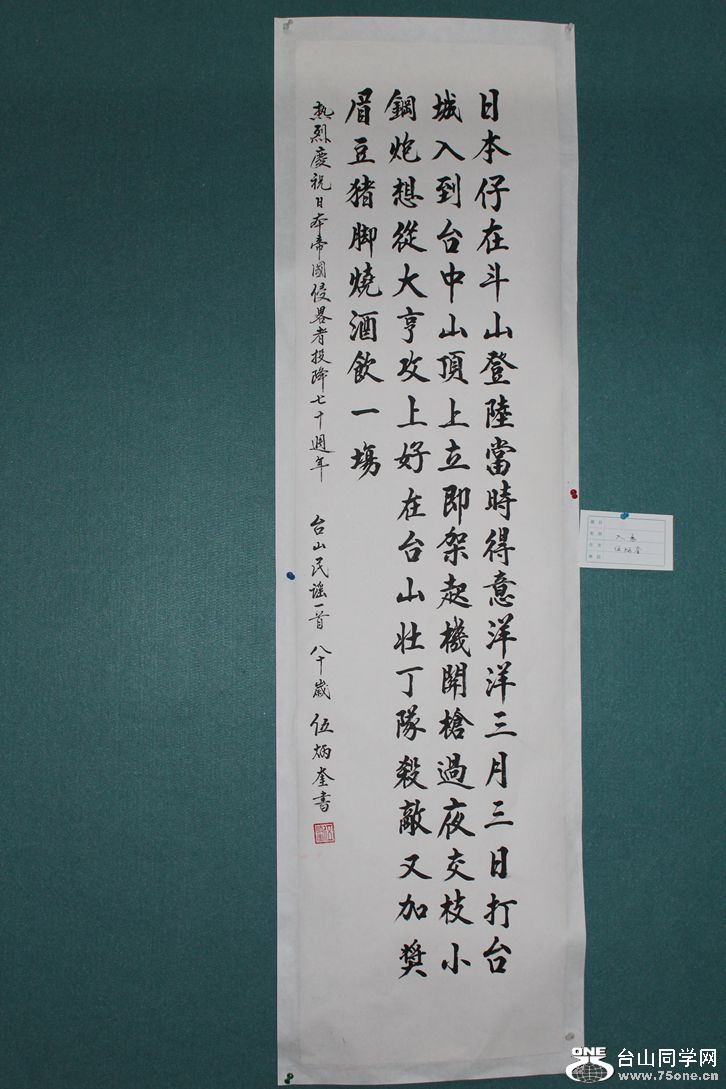 日本仔在斗山登陸當時得意洋洋三月三日打台
城入到台中山頂上立即架起機関槍過夜交枝小
鋼炮想從大亨攻上好在台山壮丁隊殺敵又加獎
眉豆猪脚燒酒飲一塲
热烈慶祝日本帝國侵畧者投降七十週年 台山民謡一首 八十歲 伍炳奎書
入选
伍炳奎
ONE
台山同学网
www.75one.cn